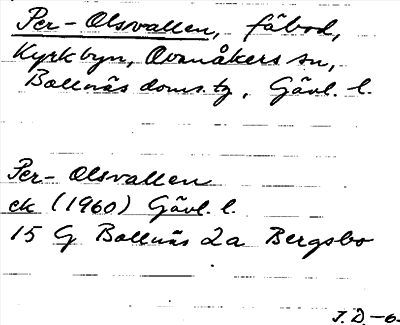 Per-Olsvallen, fäbod,
Kyrkbyn, Ovanåkers sn,
Bollnäs doms.tg, Gävl. l.
Per-Olsvallen
ek (1960) Gävl. l.
15 G Bollnäs 2a Bergsbo
J. D. -6